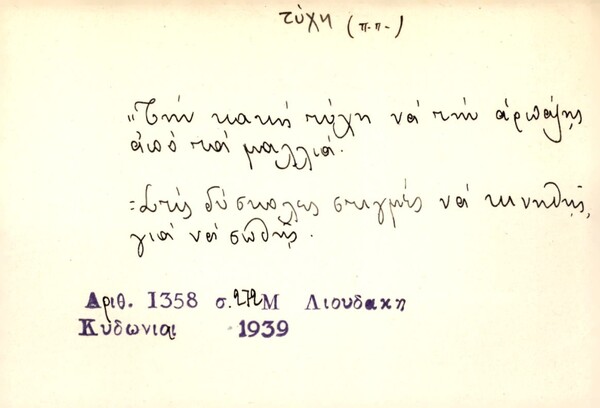 τύχη (π.π.)
"Τήν κακή τύχη νά τήν άρπάξης
ἀπό τά μαλλιά.
=Στίς δύσκολες στιγμές νά κινηθῆς,
γιά νά σωθῆς.
Αριθ. 1358 σ. 272 Μ Λιουδακη
Κυδωνιαι 1939